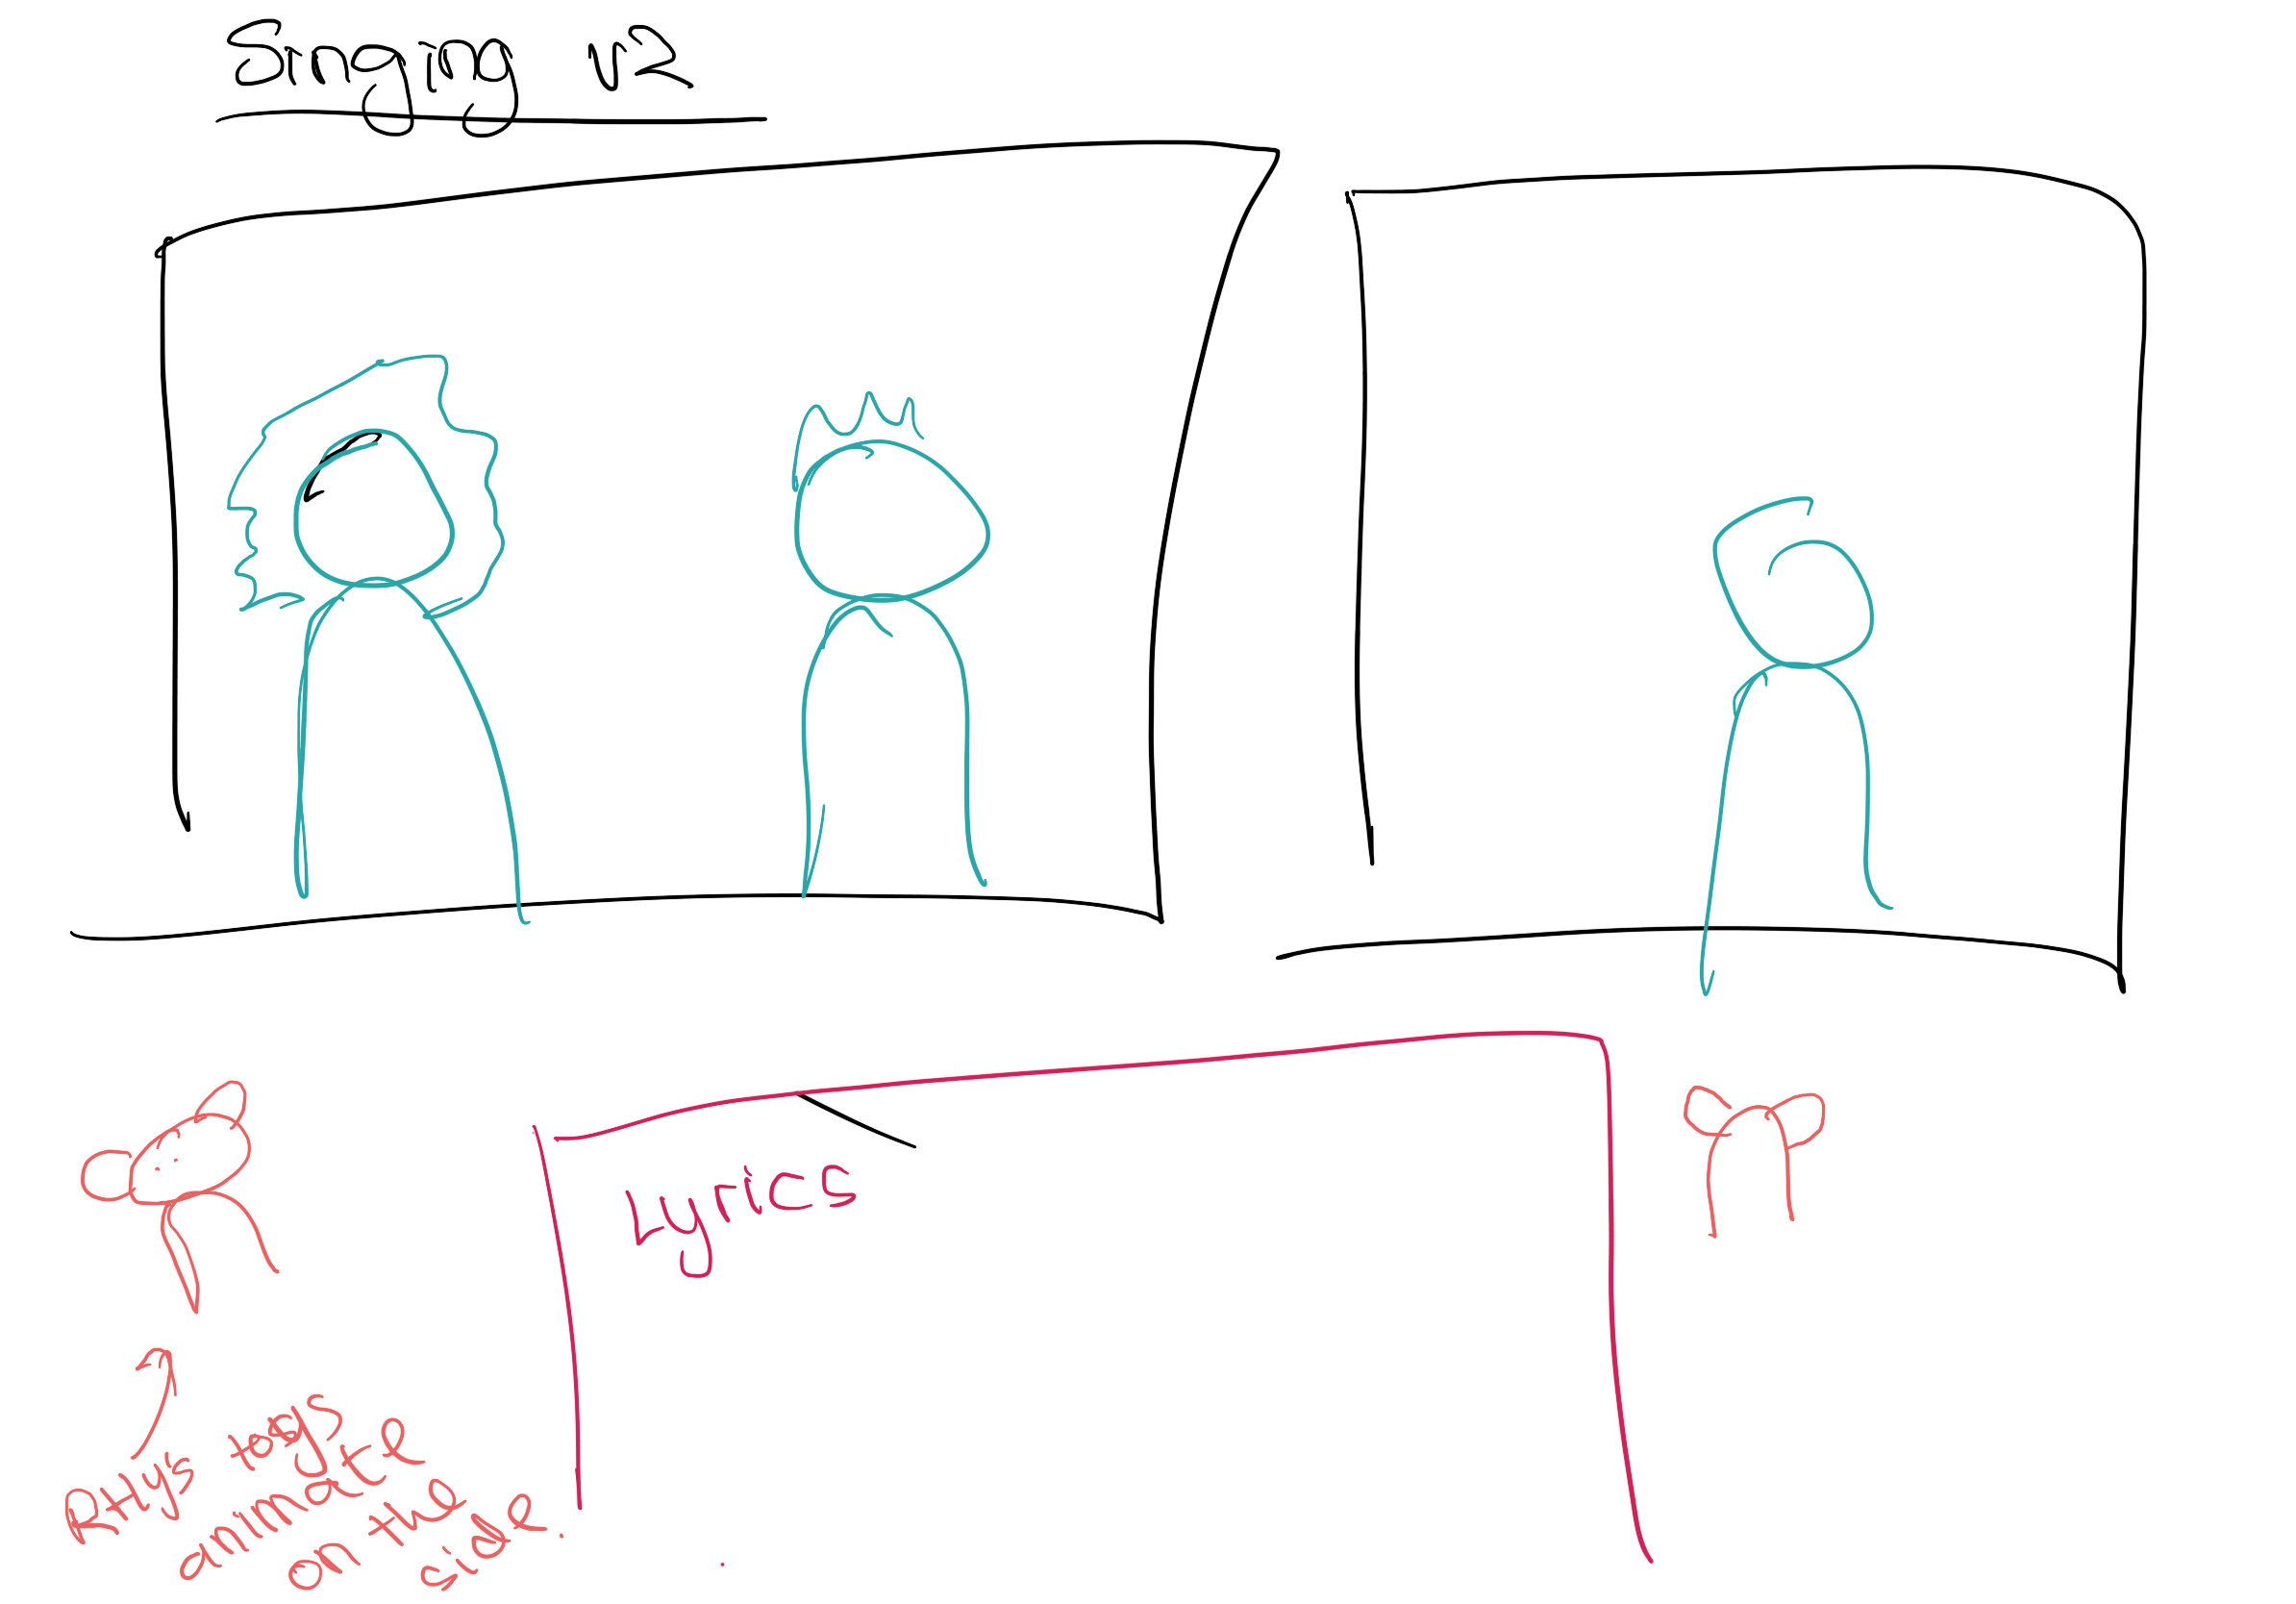 Singing v2
Lyrics
RHYS toys
animate
on the
side.